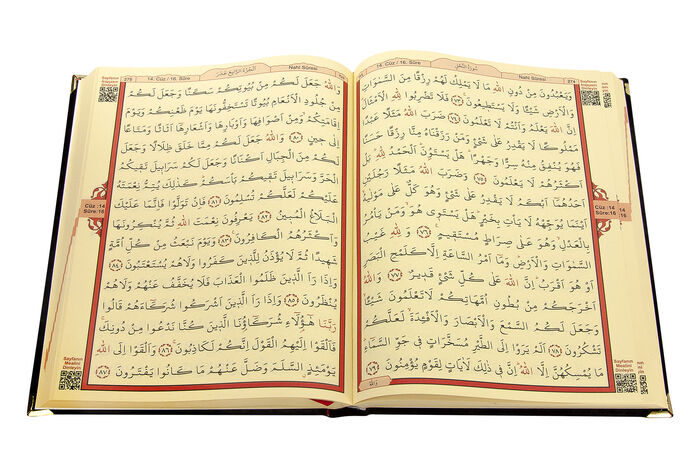 274
Nahl Sûresi
سُورَةُ النَّحْلِ
وَيَعْبُدُونَ مِنْ دُونِ اللّٰهِ مَا لَا يَمْلِكُ لَهُمْ رِزْقًا مِنَ السَّمٰوَاتِ
وَالْاَرْضِ شَيْئًا وَلَا يَسْتَطٖيعُونَ ﴿٧٣﴾ فَلَا تَضْرِبُوا لِلّٰهِ الْاَمْثَالَ
اِنَّ اللّٰهَ يَعْلَمُ وَاَنْتُمْ لَا تَعْلَمُونَ ﴿٧٤﴾ ضَرَبَ اللّٰهُ مَثَلًا عَبْدًا
مَمْلُوكًا لَا يَقْدِرُ عَلٰى شَيْءٍ وَمَنْ رَزَقْنَاهُ مِنَّا رِزْقًا حَسَنًا
فَهُوَ يُنْفِقُ مِنْهُ سِرًّا وَجَهْرًا هَلْ يَسْتَوُنَ اَلْحَمْدُ لِلّٰهِ بَلْ
اَكْثَرُهُمْ لَا يَعْلَمُونَ ﴿٧٥﴾ وَضَرَبَ اللّٰهُ مَثَلًا رَجُلَيْنِ
اَحَدُهُمَا اَبْكَمُ لَا يَقْدِرُ عَلٰى شَيْءٍ وَهُوَ كَلٌّ عَلٰى مَوْلٰيهُ
اَيْنَمَا يُوَجِّهْهُ لَا يَأْتِ بِخَيْرٍ هَلْ يَسْتَوٖي هُوَ وَمَنْ يَأْمُرُ
بِالْعَدْلِ وَهُوَ عَلٰى صِرَاطٍ مُسْتَقٖيمٍ ﴿٧٦﴾ وَلِلّٰهِ غَيْبُ
السَّمٰوَاتِ وَالْاَرْضِ وَمَا اَمْرُ السَّاعَةِ اِلَّا كَلَمْحِ الْبَصَرِ
اَوْ هُوَ اَقْرَبُ اِنَّ اللّٰهَ عَلٰى كُلِّ شَيْءٍ قَدٖيرٌ ﴿٧٧﴾ وَاللّٰهُ
اَخْرَجَكُمْ مِنْ بُطُونِ اُمَّهَاتِكُمْ لَا تَعْلَمُونَ شَيْئًا
وَجَعَلَ لَكُمُ السَّمْعَ وَالْاَبْصَارَ وَالْاَفْـِٔدَةَ لَعَلَّكُمْ
تَشْكُرُونَ ﴿٧٨﴾ اَلَمْ يَرَوْا اِلَى الطَّيْرِ مُسَخَّرَاتٍ فٖي جَوِّ السَّمَاءِ
مَا يُمْسِكُهُنَّ اِلَّا اللّٰهُ اِنَّ فٖي ذٰلِكَ لَاٰيَاتٍ لِقَوْمٍ يُؤْمِنُونَ ﴿٧٩﴾
وَاللّٰهُ
Cüz :14
Sûre:16
Sayfanın
Mealini
Dinleyin
275
14. Cüz / 16. Sûre
اَلْجُزْءُ الرَّابِعُ عَشَرَ
Nahl Sûresi
وَاللّٰهُ جَعَلَ لَكُمْ مِنْ بُيُوتِكُمْ سَكَنًا وَجَعَلَ لَكُمْ
مِنْ جُلُودِ الْاَنْعَامِ بُيُوتًا تَسْتَخِفُّونَهَا يَوْمَ ظَعْنِكُمْ وَيَوْمَ
اِقَامَتِكُمْ وَمِنْ اَصْوَافِهَا وَاَوْبَارِهَا وَاَشْعَارِهَا اَثَاثًا وَمَتَاعًا
اِلٰى حٖينٍ ﴿٨٠﴾ وَاللّٰهُ جَعَلَ لَكُمْ مِمَّا خَلَقَ ظِلَالًا وَجَعَلَ
لَكُمْ مِنَ الْجِبَالِ اَكْنَانًا وَجَعَلَ لَكُمْ سَرَابٖيلَ تَقٖيكُمُ
الْحَرَّ وَسَرَابٖيلَ تَقٖيكُمْ بَأْسَكُمْ كَذٰلِكَ يُتِمُّ نِعْمَتَهُ
عَلَيْكُمْ لَعَلَّكُمْ تُسْلِمُونَ ﴿٨١﴾ فَاِنْ تَوَلَّوْا فَاِنَّمَا عَلَيْكَ
الْبَلَاغُ الْمُبٖينُ ﴿٨٢﴾ يَعْرِفُونَ نِعْمَتَ اللّٰهِ ثُمَّ يُنْكِرُونَهَا
وَاَكْثَرُهُمُ الْكَافِرُونَ ﴿٨٣﴾ وَيَوْمَ نَبْعَثُ مِنْ كُلِّ اُمَّةٍ
شَهٖيدًا ثُمَّ لَا يُؤْذَنُ لِلَّذٖينَ كَفَرُوا وَلَا هُمْ يُسْتَعْتَبُونَ ﴿٨٤﴾
وَاِذَا رَاَ الَّذٖينَ ظَلَمُوا الْعَذَابَ فَلَا يُخَفَّفُ عَنْهُمْ وَلَا هُمْ
يُنْظَرُونَ ﴿٨٥﴾ وَاِذَا رَاَ الَّذٖينَ اَشْرَكُوا شُرَكَاءَهُمْ قَالُوا
رَبَّنَا هٰؤُلَاءِ شُرَكَاؤُنَا الَّذٖينَ كُنَّا نَدْعُوا مِنْ دُونِكَ
فَاَلْقَوْا اِلَيْهِمُ الْقَوْلَ اِنَّكُمْ لَكَاذِبُونَ ﴿٨٦﴾ وَاَلْقَوْا اِلَى اللّٰهِ
يَوْمَئِذٍ السَّلَمَ وَضَلَّ عَنْهُمْ مَا كَانُوا يَفْتَرُونَ ﴿٨٧﴾
Cüz :14
Sûre:16
Sayfanın
Mealini
Dinleyin